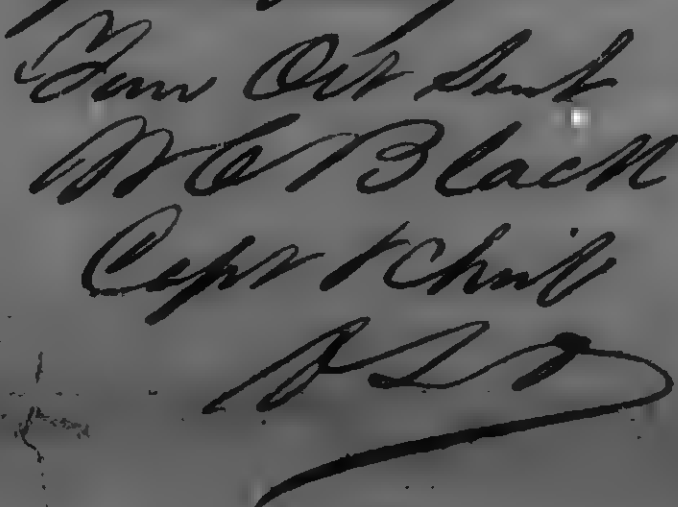 Your Obt Servt
W C Black
Capt & Chief